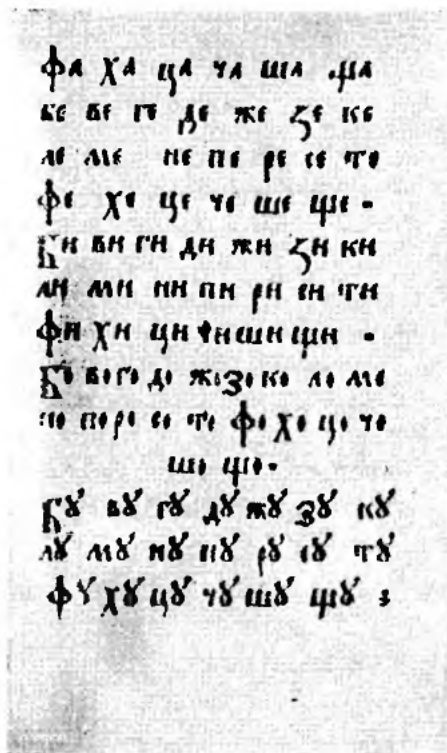 фа ха ца ча ша ща
бе ве ге де же зе ке
ле ме не пе ре се те
фе хе це че ше ще.
би ви ги ди жи зи ки
ли ми ни пи ри си ти
фи хи ци чи ши щи .
бо во го до жо зо ко ло мо
но по ро со то фо хо цо чо
шо що.
бꙋ вꙋ гꙋ дꙋ жꙋ зꙋ кꙋ
лꙋ мꙋ нꙋ пꙋ рꙋ сꙋ тꙋ
фꙋ хꙋ цꙋ чꙋ шꙋ щꙋ :